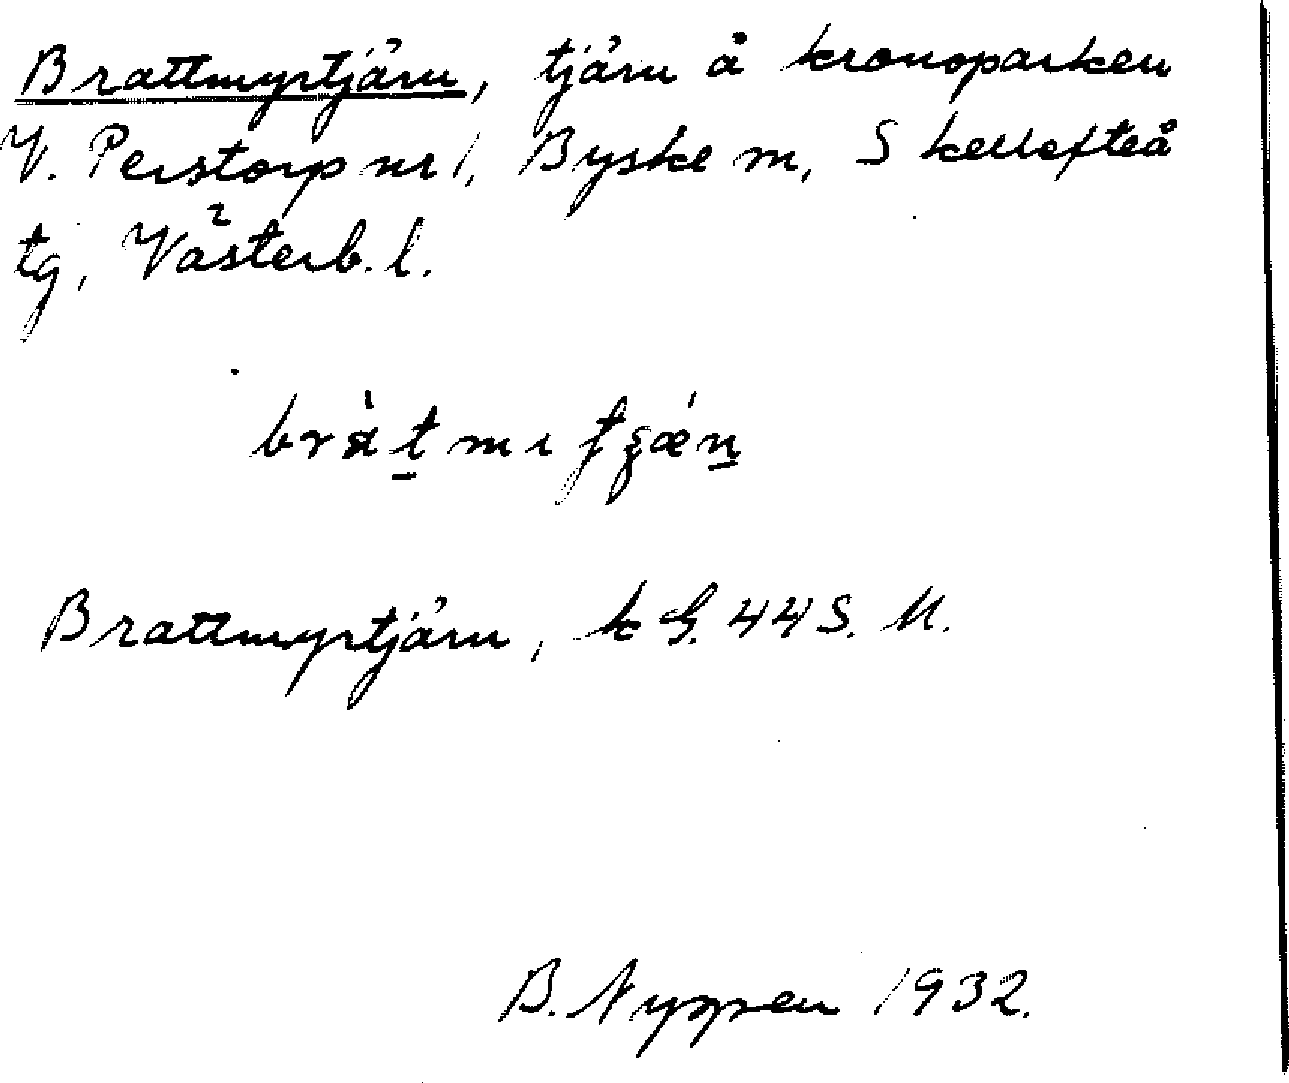 Brattmyrtjärn, tjärn å kronoparken
V. Perstorp nr 1, Byske sn, Skellefteå
tg, Västerb. l.
Brattmyrtjärn, k G. 44 S. U.
B. Nyppen 1932.